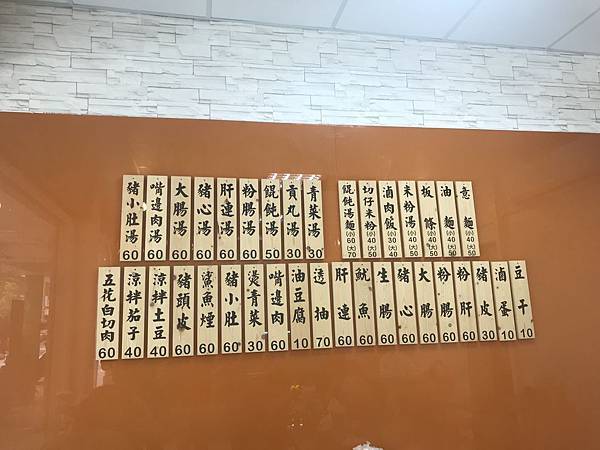 豬小肚湯 60
嘴邊肉湯 60
大腸湯 60
豬心湯 60
肝連湯 60
粉腸湯 60
餛飩湯 50
貢丸湯 30
青菜湯 30
餛飩湯麵 (小)60 (大)70
切仔米粉 (小)40 (大)50
滷肉飯 (小)30 (大)40
米粉湯 (小)40 (大)50
板條 (小)40 (大)50
油麵 (小)40 (大)50
意麵 (小)40 (大)50
五花白切肉 60
涼拌茄子 40
涼拌土豆 40
豬頭皮 60
鯊魚煙 60
豬小肚 60
燙青菜 30
嘴邊肉 60
油豆腐 10
透抽 70
肝連 60
魷魚 60
生腸 60
豬心 60
大腸 60
粉腸 60
粉肝 60
豬皮 30
滷蛋 10
豆干 10